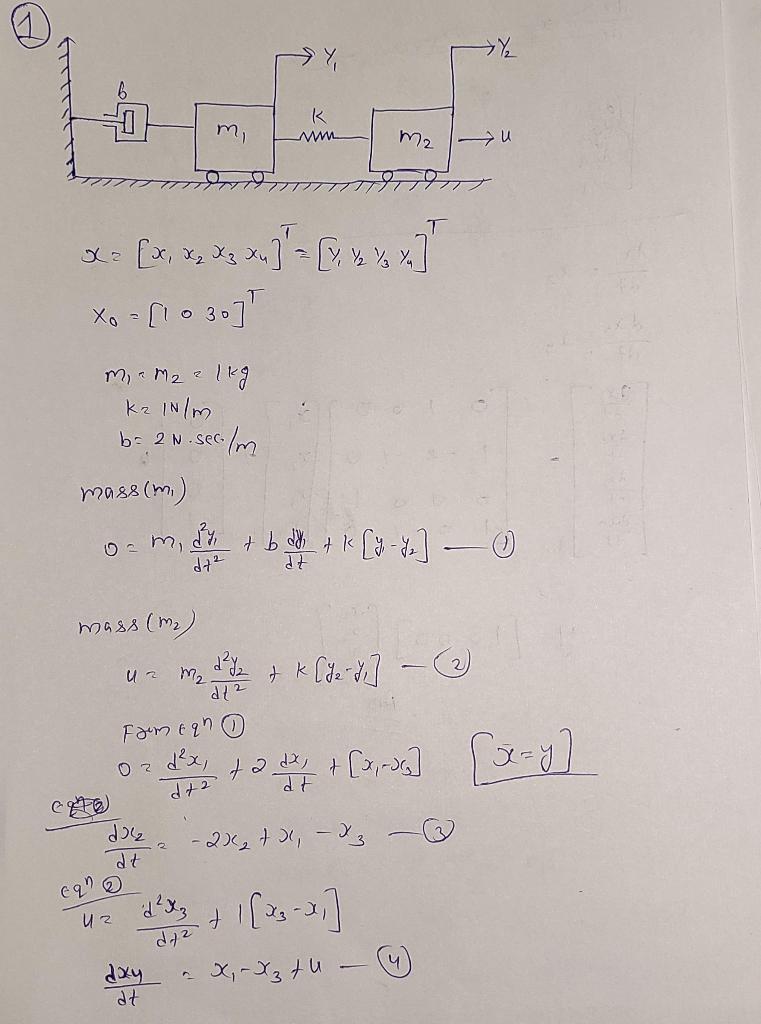 1
→ Y₁
→ Y₂
b
m₁
K
m₂
→ u
x = [x₁ x₂ x₃ x₄]ᵀ = [Y₁ Y₂ Y₃ Y₄]ᵀ
x₀ = [1 0 3 0]ᵀ
m₁ = m₂ = 1kg
K = 1N/m
b = 2 N.sec/m
mass (m₁)
0 = m₁ d²y₁/dt² + b dy₁/dt + k [y₁-y₂] — ①
mass (m₂)
u = m₂ d²y₂/dt² + k [y₂-y₁] — ②
From eqn ①
0 = d²x₁/dt² + 2 dx₁/dt + [x₁-x₃] [x=y]
dx₂/dt = -2x₂ + x₁ - x₃ — ③
eqn ②
u = d²x₃/dt² + 1[x₃-x₁]
dx₄/dt = x₁-x₃+u — ④